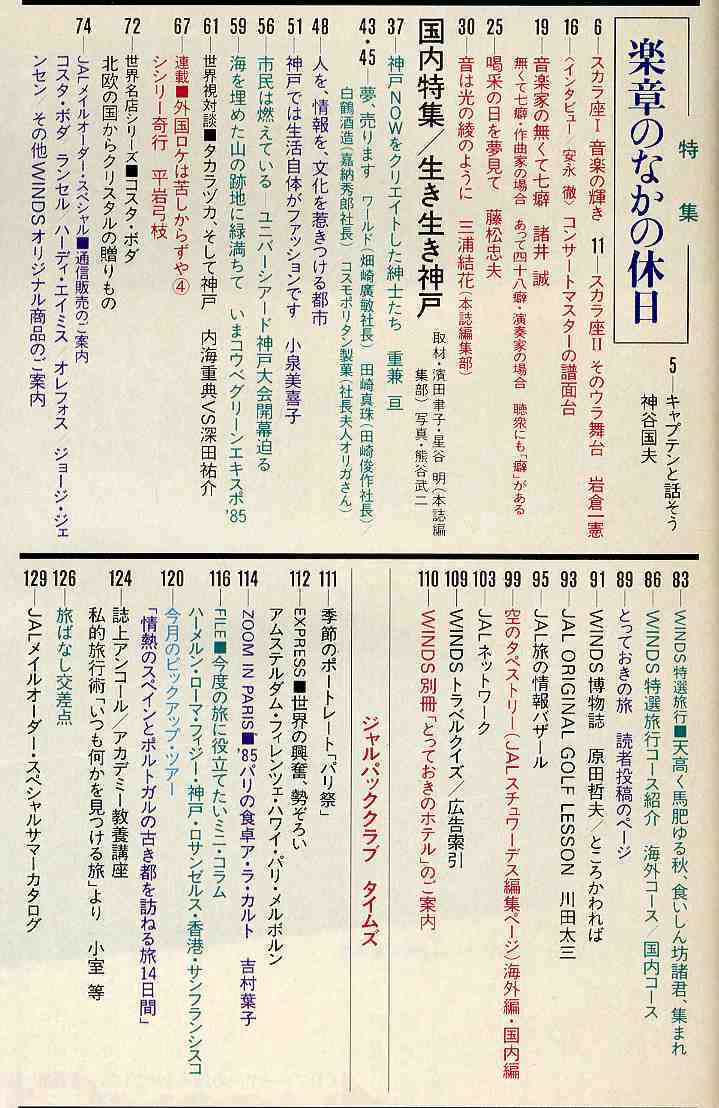 特集
楽章のなかの休日
5―キャプテンと話そう
神谷国夫
6―スカラ座Ⅰ 音楽の輝き 11―スカラ座Ⅱ そのウラ舞台 岩倉一憲
16〈インタビュー 安永 徹〉 コンサートマスターの譜面台
19 音楽家の無くて七癖 諸井 誠
無くて七癖・作曲家の場合 あって四十八癖・演奏家の場合 聴衆にも「癖」がある
25 喝采の日を夢見て 藤松忠夫
30 音は光の綾のように 三浦結花(本誌編集部)
国内特集/生き生き神戸
取材・濱田聿子・星谷 明(本誌編
集部) 写真・熊谷武二
37 神戸NOWをクリエイトした紳士たち 重兼 亘
43・45 夢、売ります ワールド(畑崎廣敏社長) 田崎真珠(田崎俊作社長)/
白鶴酒造(嘉納秀郎社長) コスモポリタン製菓(社長夫人オリガさん)
48 人を、情報を、文化を惹きつける都市
51 神戸では生活自体がファッションです 小泉美喜子
56 市民は燃えている ユニバーシアード神戸大会開幕迫る
59 海を埋めた山の跡地に緑満ちて いまコウベグリーンエキスポ'85
61 世界視対談■タカラヅカ、そして神戸 内海重典VS深田祐介
67 連載■外国ロケは苦しからずや④
シシリー奇行 平岩弓枝
72 世界名店シリーズ■コスタ・ボダ
北欧の国からクリスタルの贈りもの
74 JALメイルオーダー・スペシャル■通信販売のご案内
コスタ・ボダ ランセル/ハーディ・エイミス/オレフォス/ジョージ・ジェ
ンセン/その他WINDSオリジナル商品のご案内
83 WINDS特選旅行■天高く馬肥ゆる秋、食いしん坊諸君、集まれ
86 WINDS特選旅行コース紹介 海外コース/国内コース
89 とっておきの旅 読者投稿のページ
91 WINDS博物誌 原田哲夫/ところかわれば
93 JAL ORIGINAL GOLF LESSON 川田太三
95 JAL旅の情報バザール
99 空のタペストリー(JALスチュワーデス編集ページ)海外編・国内編
103 JALネットワーク
109 WINDSトラベルクイズ/広告索引
110 WINDS別冊「とっておきのホテル」のご案内
ジャルパッククラブ タイムズ
111 季節のポートレート「パリ祭」
112 EXPRESS■世界の興奮、勢ぞろい
アムステルダム・フィレンツェ・ハワイ・パリ・メルボルン
114 ZOOM IN PARIS■'85パリの食卓ア・ラ・カルト 吉村葉子
116 FILE■今度の旅に役立てたいミニ・コラム
ハーメルン・ローマ・フィジー・神戸・ロサンゼルス・香港・サンフランシスコ
120 今月のピックアップ・ツアー
「情熱のスペインとポルトガルの古き都を訪ねる旅14日間」
124 誌上アンコール/アカデミー教養講座
私的旅行術「いつも何かを見つける旅」より 小室 等
126 旅ばなし交差点
129 JALメイルオーダー・スペシャルサマーカタログ